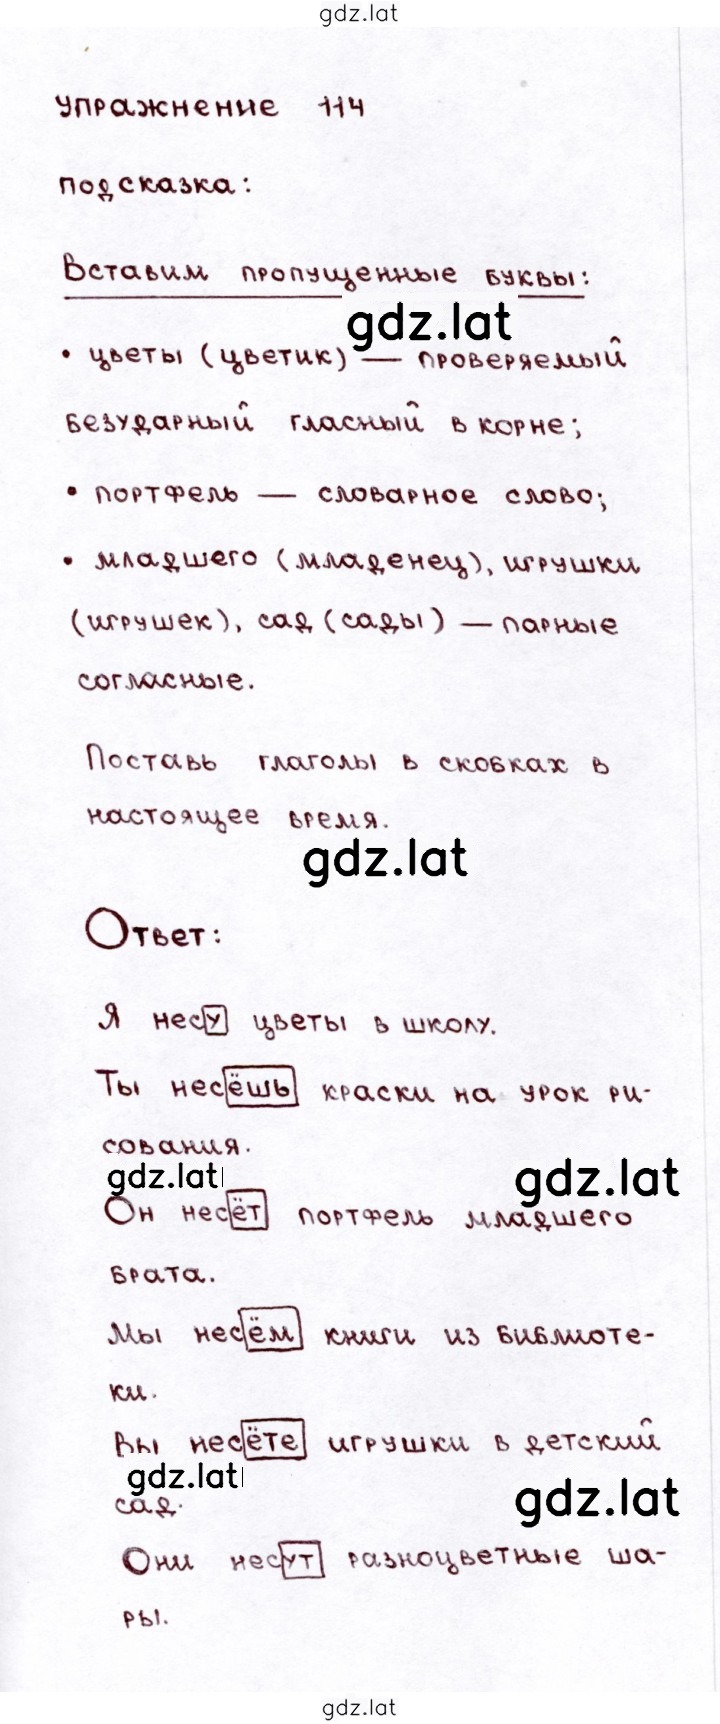 gdz.lat
Упражнение 114
подсказка:
Вставим пропущенные буквы:
gdz.lat
• цветы (цветик) — проверяемый
безударный гласный в корне;
• портфель — словарное слово;
• младшего (младенец), игрушки
(игрушек), сад (сады) — парные
согласные.
Поставь глаголы в скобках в
настоящее время.
gdz.lat
Ответ:
Я несу цветы в школу.
Ты несёшь краски на урок ри-
сования.
gdz.lat gdz.lat
Он несёт портфель младшего
брата.
Мы несём книги из библиоте-
ки.
Вы несёте игрушки в детский
gdz.lat gdz.lat
сад.
Они несут разноцветные ша-
ры.
gdz.lat